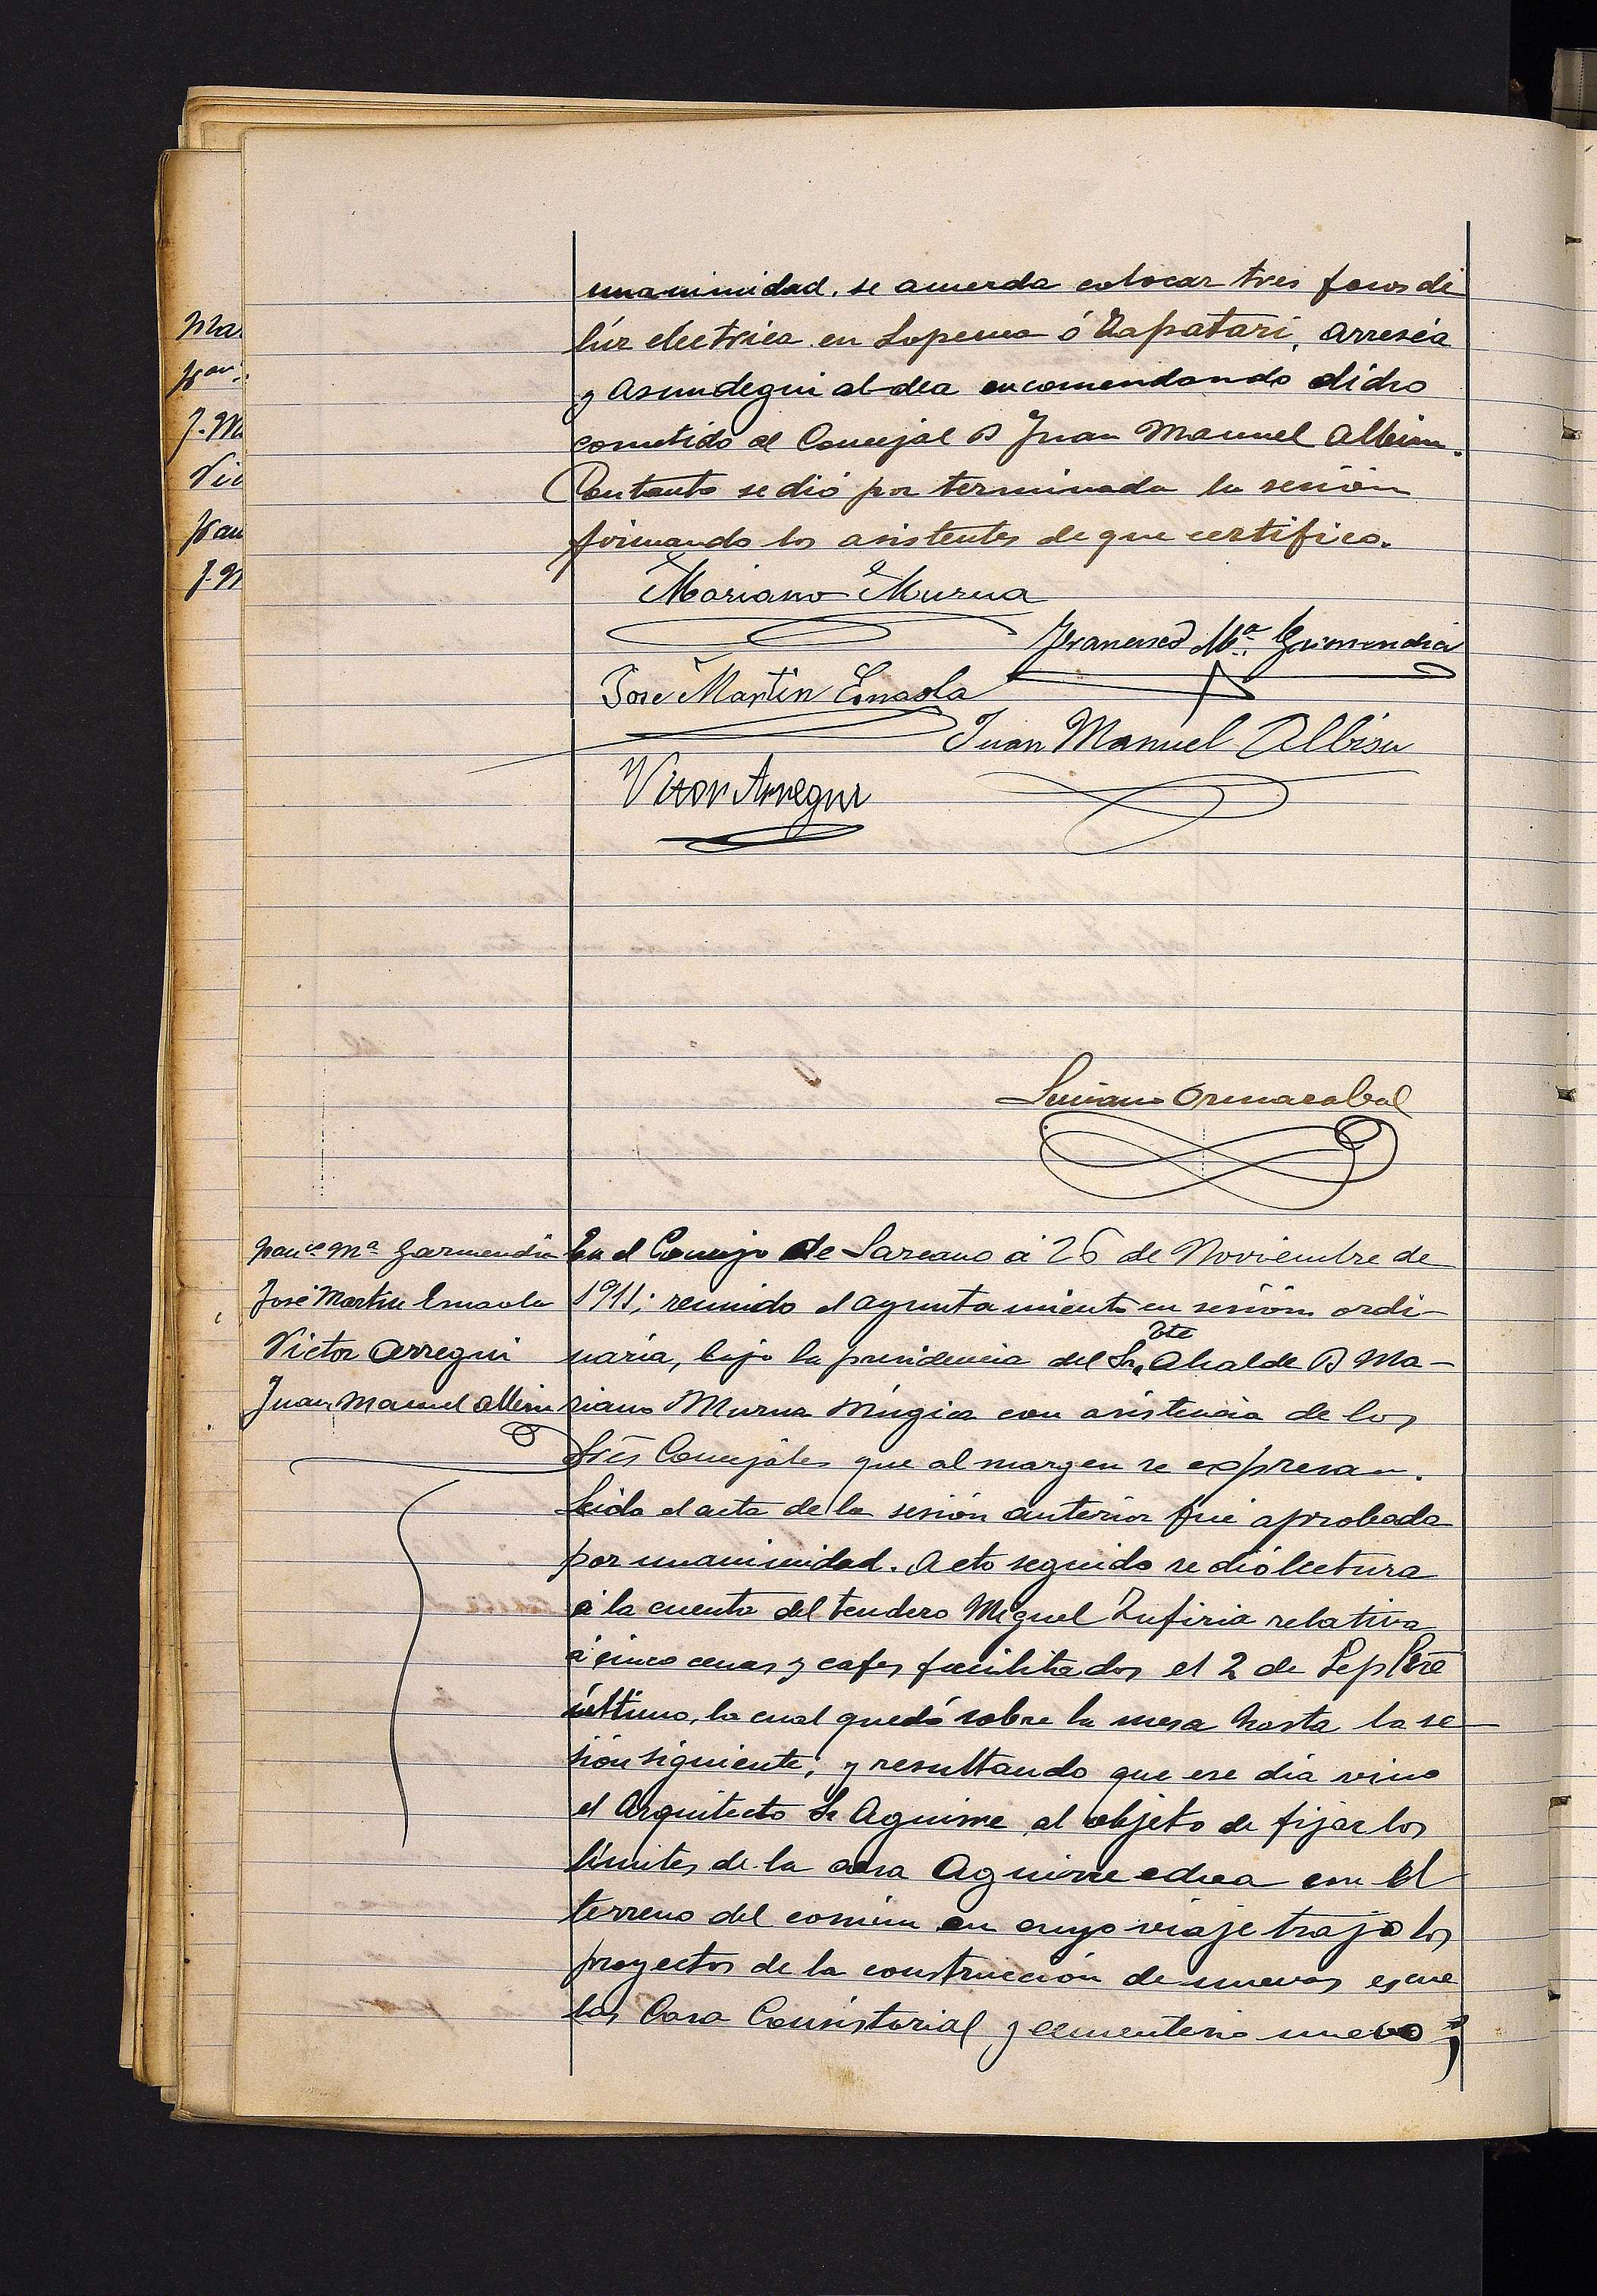 unanimidad. se acuerda colocar tres focos de
lúz eléctrica en Loperena ó Zapatari, Arreséa
y Asundegui aldea encomendando dicho
cometido al Concejal D Juan Manuel Albisu.
Con tanto se dió por terminada la sesión
firmando los asistentes de que certifico.
Mariano Murua
Francisco Mª. Garmendia
Jose Martin Ernaola
Juan Manuel Albisu
Victor Arregui
Luciano Ormazabal
Francº Mª Garmendia
José Martin Ernaola
Victor Arregui
Juan Manuel Albisu
En el Concejo de Larzano á 26 de Noviembre de
1911; reunido el ayuntamiento en sesión ordi-
naria, bajo la presidencia del Sr. Tte Alcalde D Ma-
riano Murua Múgica con asistencia de los
Sres Concejales que al margen se expresan.
Leida el acta de la sesión anterior fué aprobada
por unanimidad. Acto seguido se dió lectura
á la cuenta del tendero Miguel Zufiria relativa
á cinco cenas y cafes facilitados el 2 de Sepbre
último, la cual quedó sobre la mesa hasta la se-
sión siguiente; y resultando que ese día vino
el Arquitecto Sr Aguirre al objeto de fijar los
límites de la casa Aguirre echea con el
terreno del común en cuyo viaje trajo los
proyectos de la construcción de nuevas escue
las Casa Consistorial y cementerio nuevo;
Mar
Fran
J. M
Vic
Fran
J. M